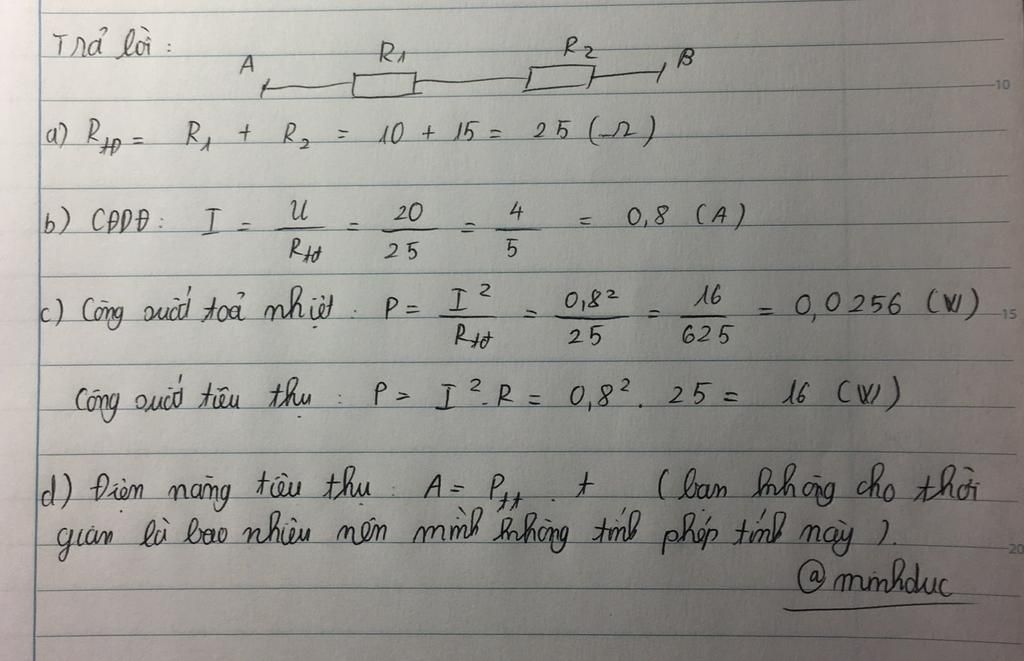 Trả lời :
A R1 R2 B
a) Rtđ = R1 + R2 = 10 + 15 = 25 (Ω)
b) CĐDĐ : I = U / Rtđ = 20 / 25 = 4 / 5 = 0,8 (A)
c) Công suất toả nhiệt : P = I² / Rtđ = 0,8² / 25 = 16 / 625 = 0,0256 (W)
Công suất tiêu thụ : P = I².R = 0,8² . 25 = 16 (W)
d) Điện năng tiêu thụ : A = Ptt . t (bạn không cho thời
gian là bao nhiêu nên mình không tính phép tính này ).
@minhduc
10
15
20